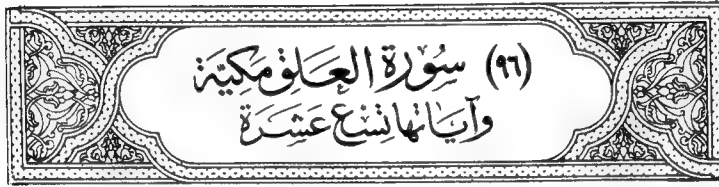 (٩٦) سُورَة العَلق مَكيّة
وآيَاتها تسْع عَشرَة